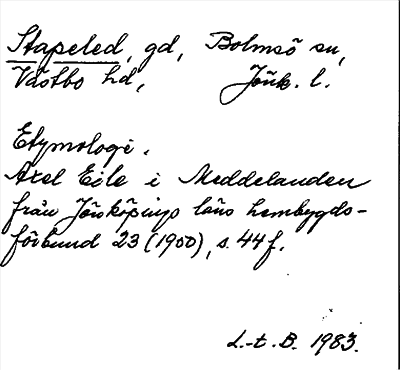 Stapeled, gd, Bolmsö sn,
Västbo hd, Jönk. l.
Etymologi.
Axel Eile i Meddelanden
från Jönköpings läns hembygds-
förbund 23 (1950), s. 44 f.
L.-t. B. 1983.